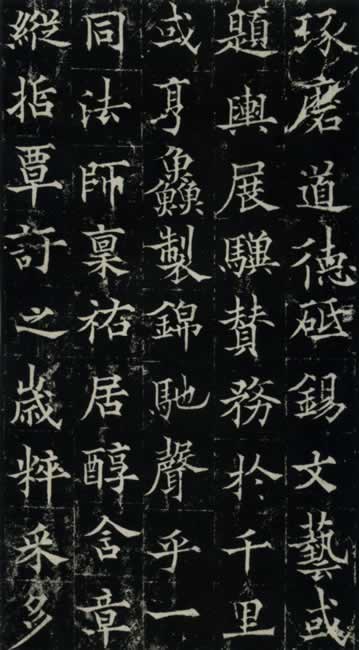 琢磨道德砥錫文藝或
題輿展驥贊務於千里
或亨鱻製錦馳聲乎一
同法師稟祐居醇含章
縱指覃訏之歲粹采多